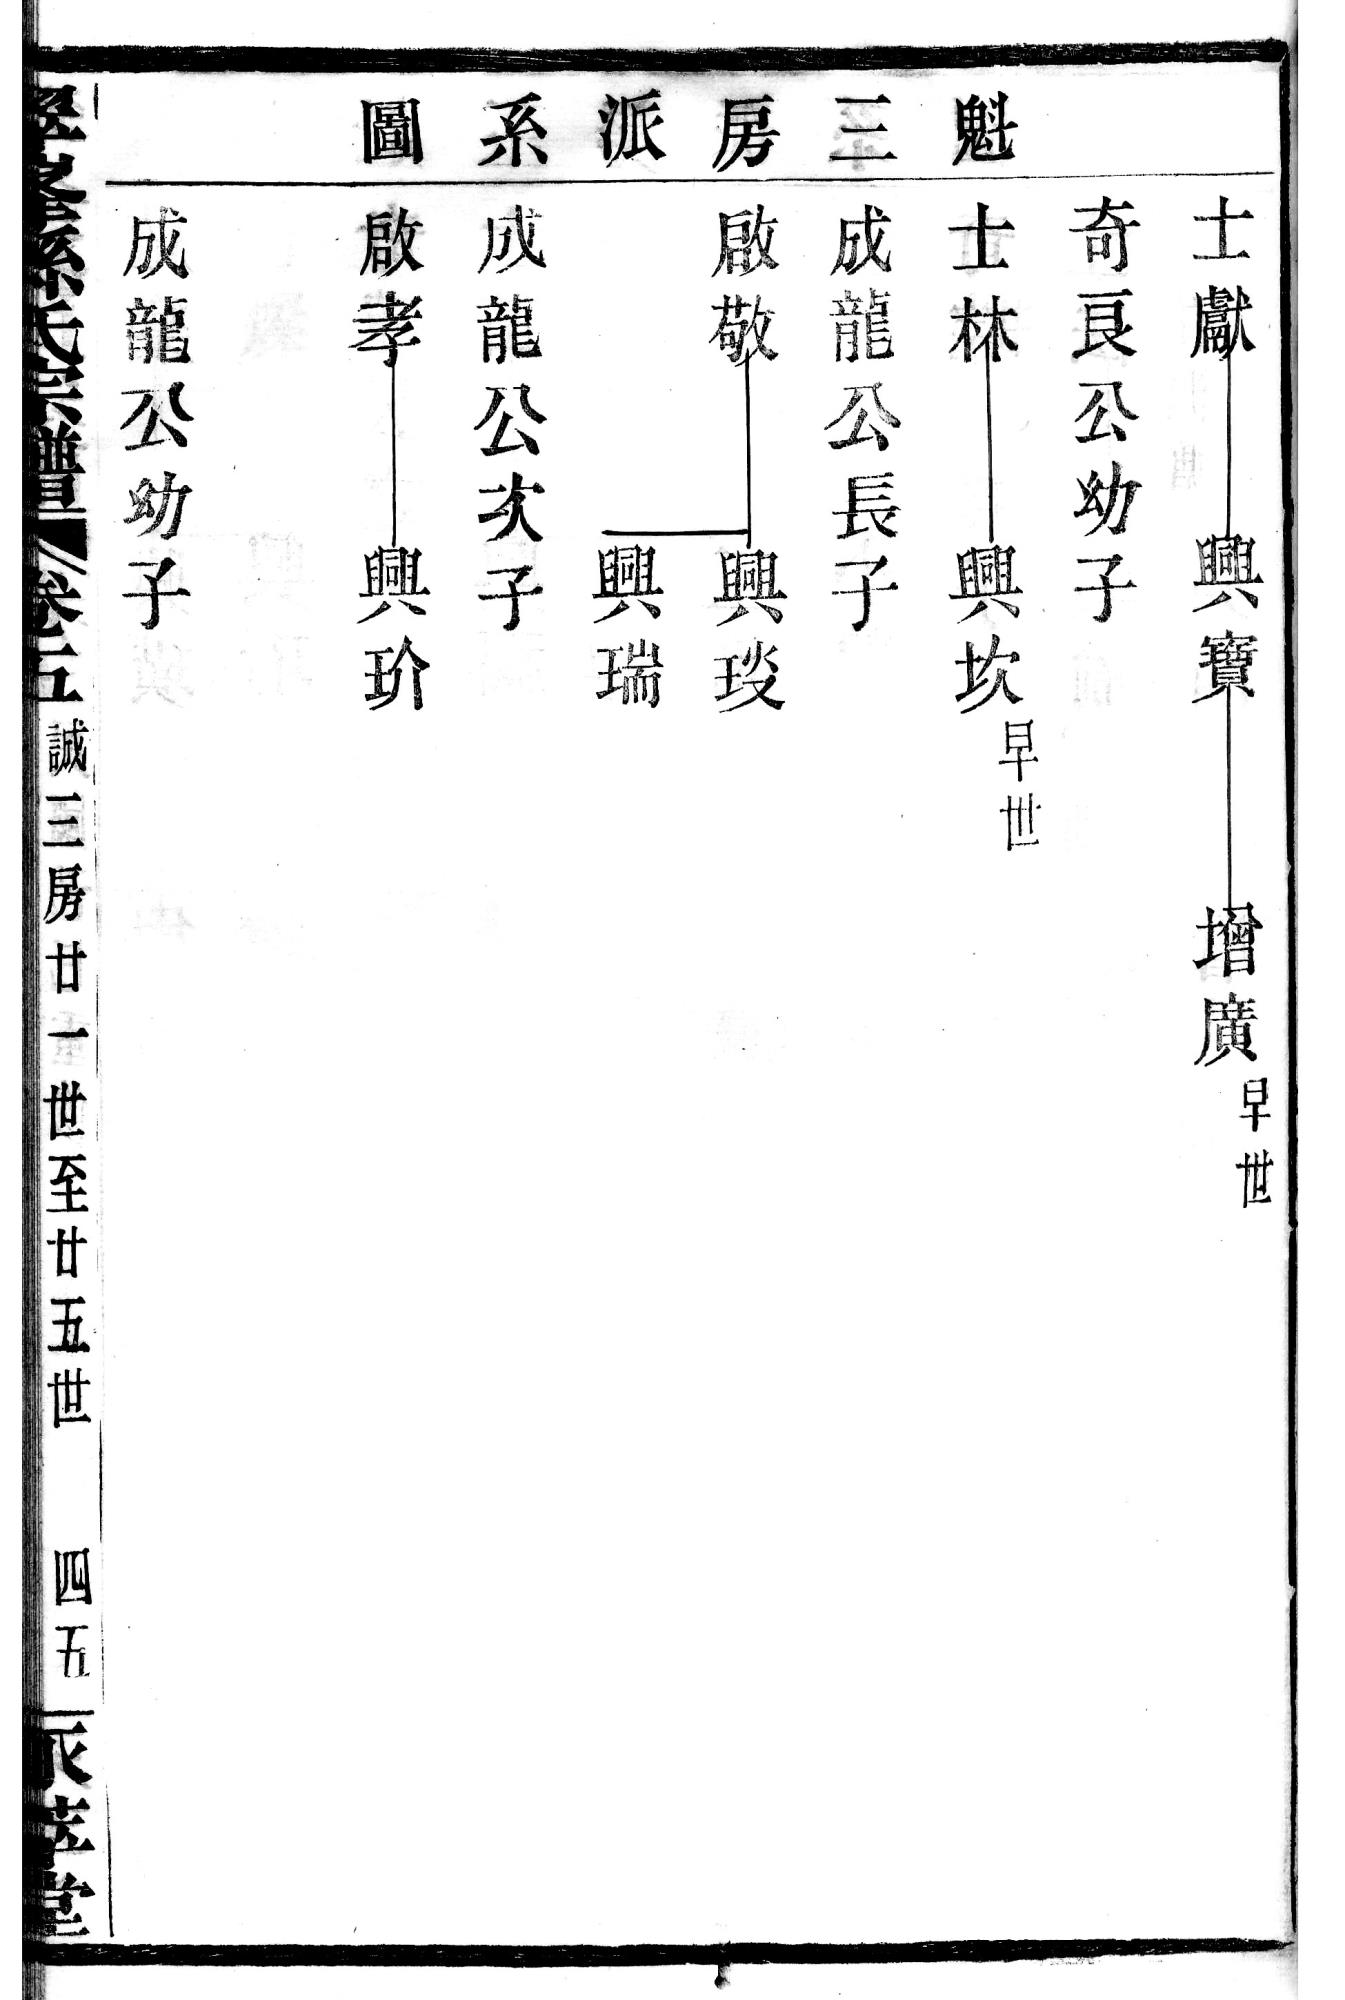 魁三房派系圖
士獻 興寶 增廣 早世
奇良公幼子
士林 興坎 早世
成龍公長子
啟敬 興琰
興瑞
成龍公次子
啟孝 興玠
成龍公幼子
孫氏宗譜 卷五 誠三房廿一世至廿五世 四五 堂